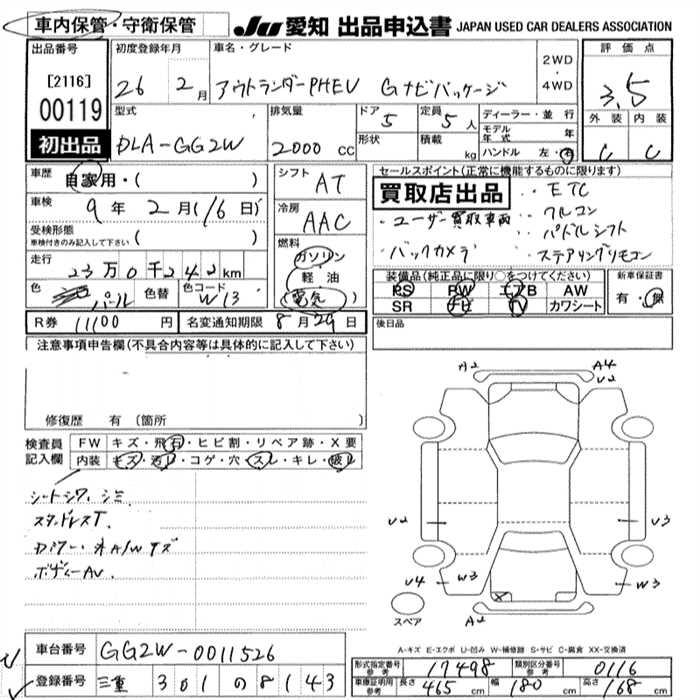 車内保管・守衛保管 JU 愛知 出品申込書 JAPAN USED CAR DEALERS ASSOCIATION
出品番号 [2116] 00119 初出品
初度登録年月 26 2月
車名・グレード アウトランダーPHEV Gナビパッケージ
2WD・4WD
評価点 3.5
外装 C 内装 C
型式 DLA-GG2W
排気量 2000 cc
ドア 5 形状
定員 5人 積載 kg
ディーラー・並行
モデル年式 年
ハンドル 左・右
車歴 自家用・( )
車検 9年2月(16日)
受検形態 車検付きのみ記入して下さい ( )
走行 23万0千242km
色 パール 色替 色コード W13
R券 11100円 名変通知期限 8月29日
シフト AT
冷房 AAC
燃料 ガソリン 軽油 電気
セールスポイント(正常に機能するものに限ります)
買取店出品
・ETC
・ユーザー買取車両 ・クルコン
・パドルシフト
・バックカメラ ・ステアリングリモコン
装備品(純正品に限り○をつけてください)
PS PW エアB AW
SR ナビ TV カワシート
新車保証書 有・無
後日品
注意事項申告欄(不具合内容等は具体的に記入して下さい)
修復歴 有(箇所 )
検査員記入欄
FW キズ・飛石・ヒビ割・リペア跡・X要
内装 キズ・汚レ・コゲ・穴・スレ・キレ・破レ
シートシワ、シミ
スタッドレスT.
ボディーAU.
A2 A4 U2
U2 U3
U4 W3 W3
A2
スペア
A-キズ E-エクボ U-凹み W-補修跡 S-サビ C-腐食 XX-交換済
車台番号 GG2W-0011526
登録番号 三重 301 の 8143
形式指定番号 参考 17498 類別区分番号 参考 0116
車庫証明用 参考 長さ 465cm 幅 180cm 高さ 168cm